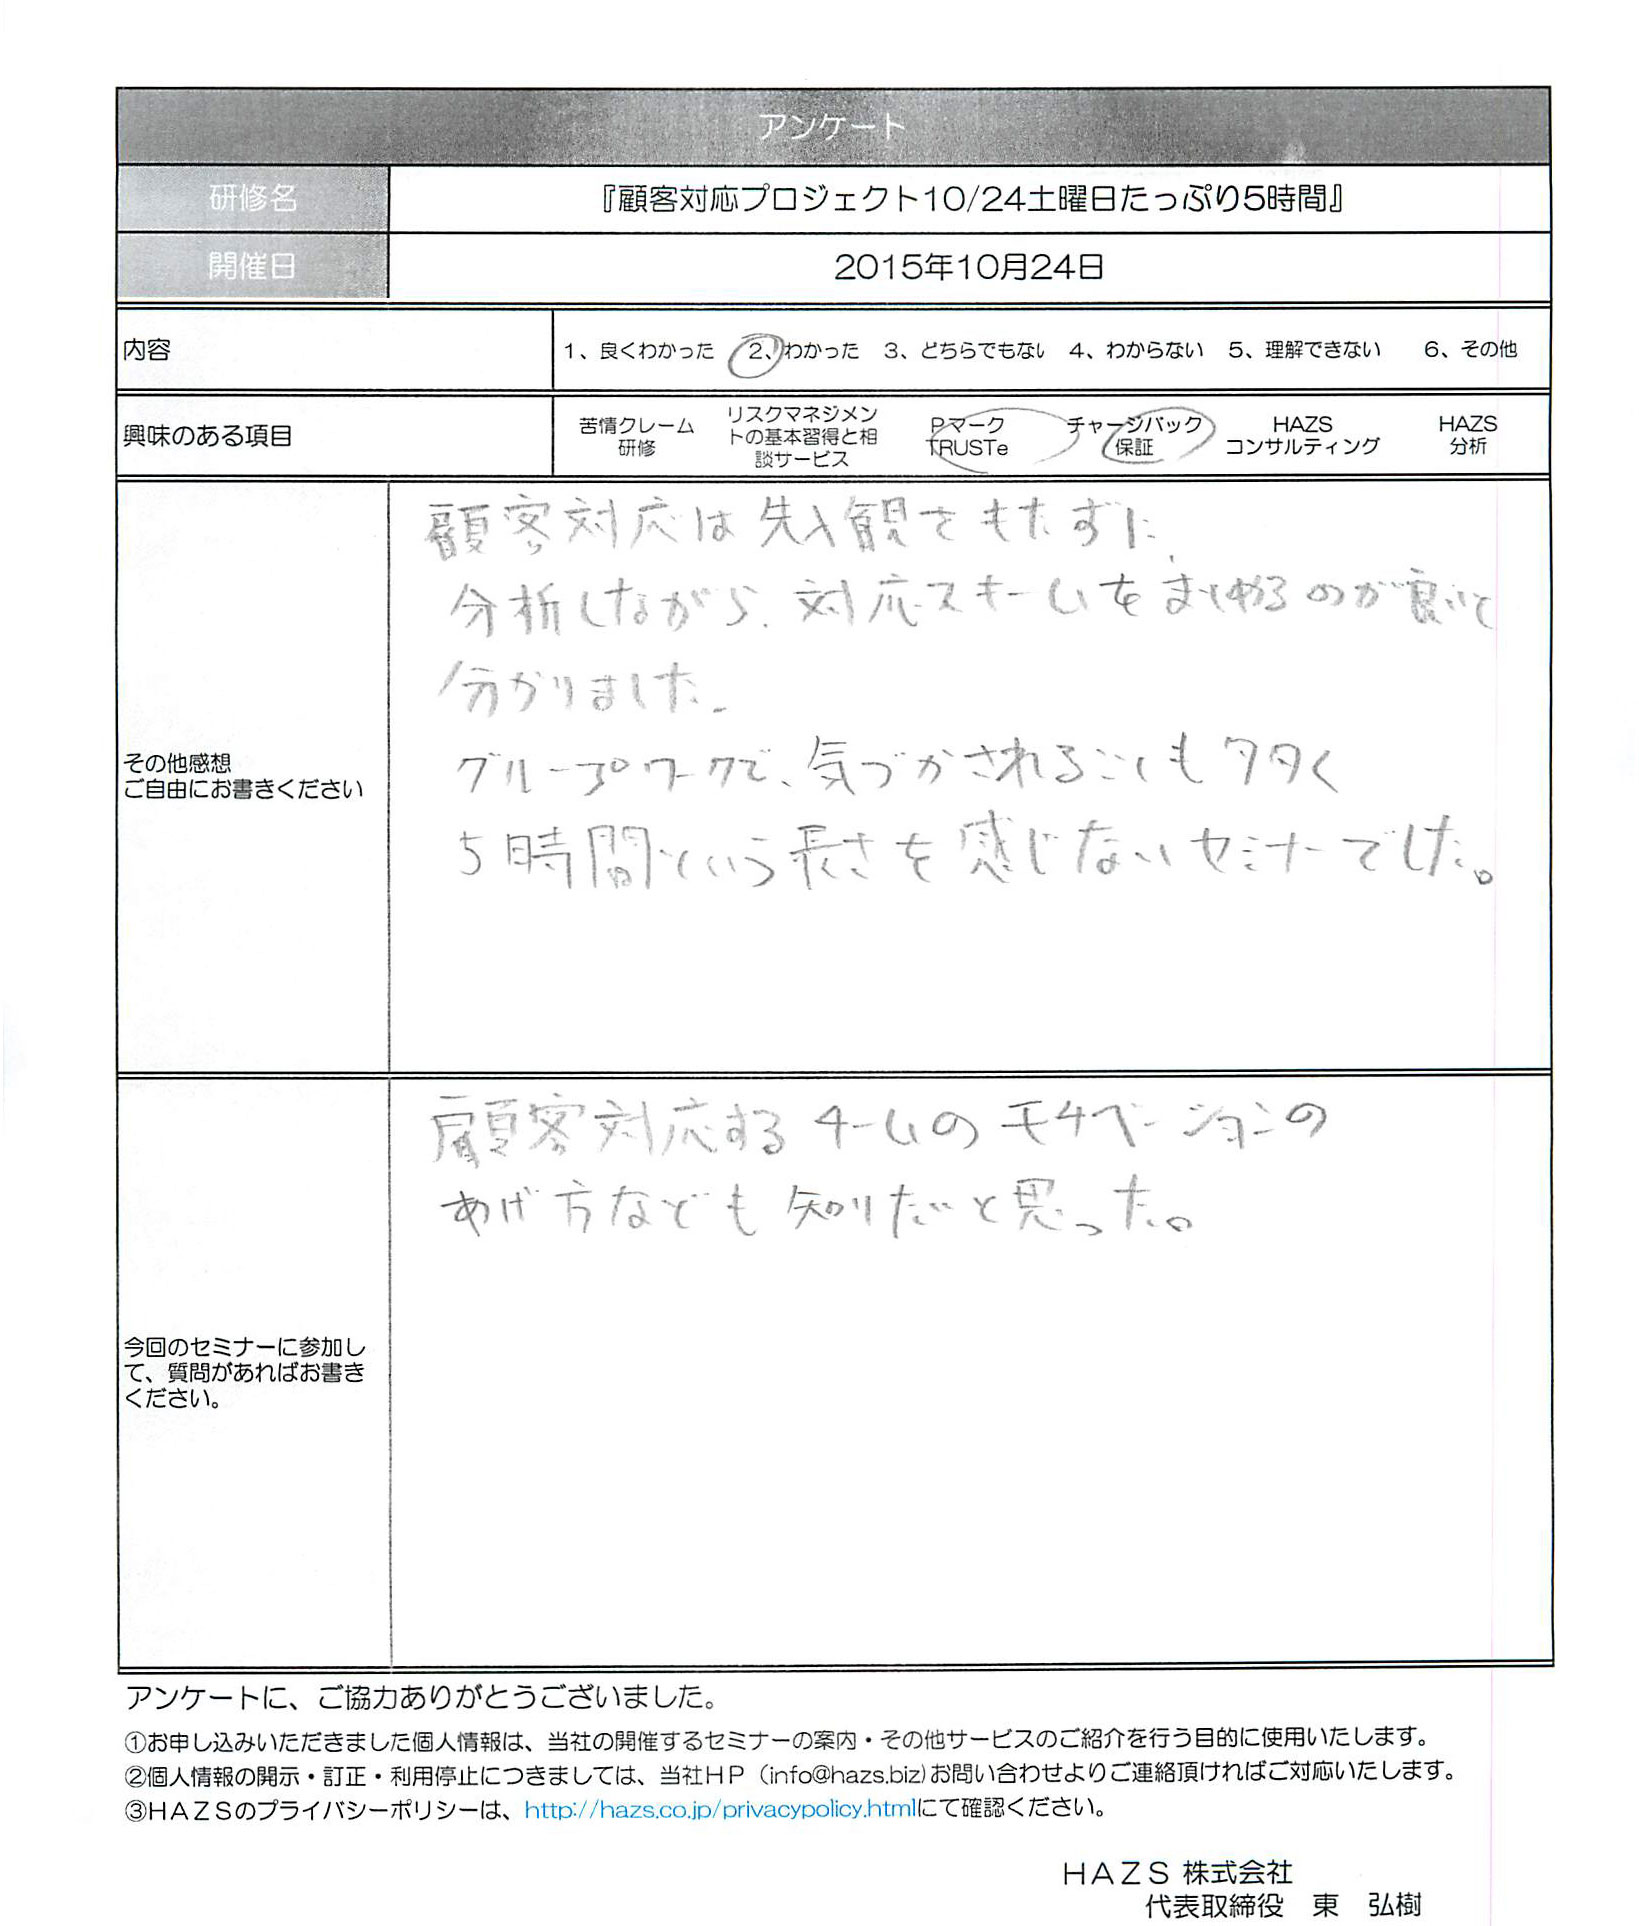 アンケート
研修名
『顧客対応プロジェクト10/24土曜日たっぷり5時間』
開催日
2015年10月24日
内容
1、良くわかった 2、わかった 3、どちらでもない 4、わからない 5、理解できない 6、その他
興味のある項目
苦情クレーム
研修
リスクマネジメン
トの基本習得と相
談サービス
Pマーク
TRUSTe
チャージバック
保証
HAZS
コンサルティング
HAZS
分析
その他感想
ご自由にお書きください
顧客対応は先入観をもたずに、
分析しながら、対応スキームをまとめるのが良いと
分かりました。
グループワークで、気づかされることも多く
5時間という長さを感じないセミナーでした。
今回のセミナーに参加し
て、質問があればお書き
ください。
顧客対応するチームのモチベーションの
あげ方なども知りたいと思った。
アンケートに、ご協力ありがとうございました。
①お申し込みいただきました個人情報は、当社の開催するセミナーの案内・その他サービスのご紹介を行う目的に使用いたします。
②個人情報の開示・訂正・利用停止につきましては、当社HP(info@hazs.biz)お問い合わせよりご連絡頂ければご対応いたします。
③HAZSのプライバシーポリシーは、http://hazs.co.jp/privacypolicy.htmlにて確認ください。
HAZS 株式会社
代表取締役 東 弘樹